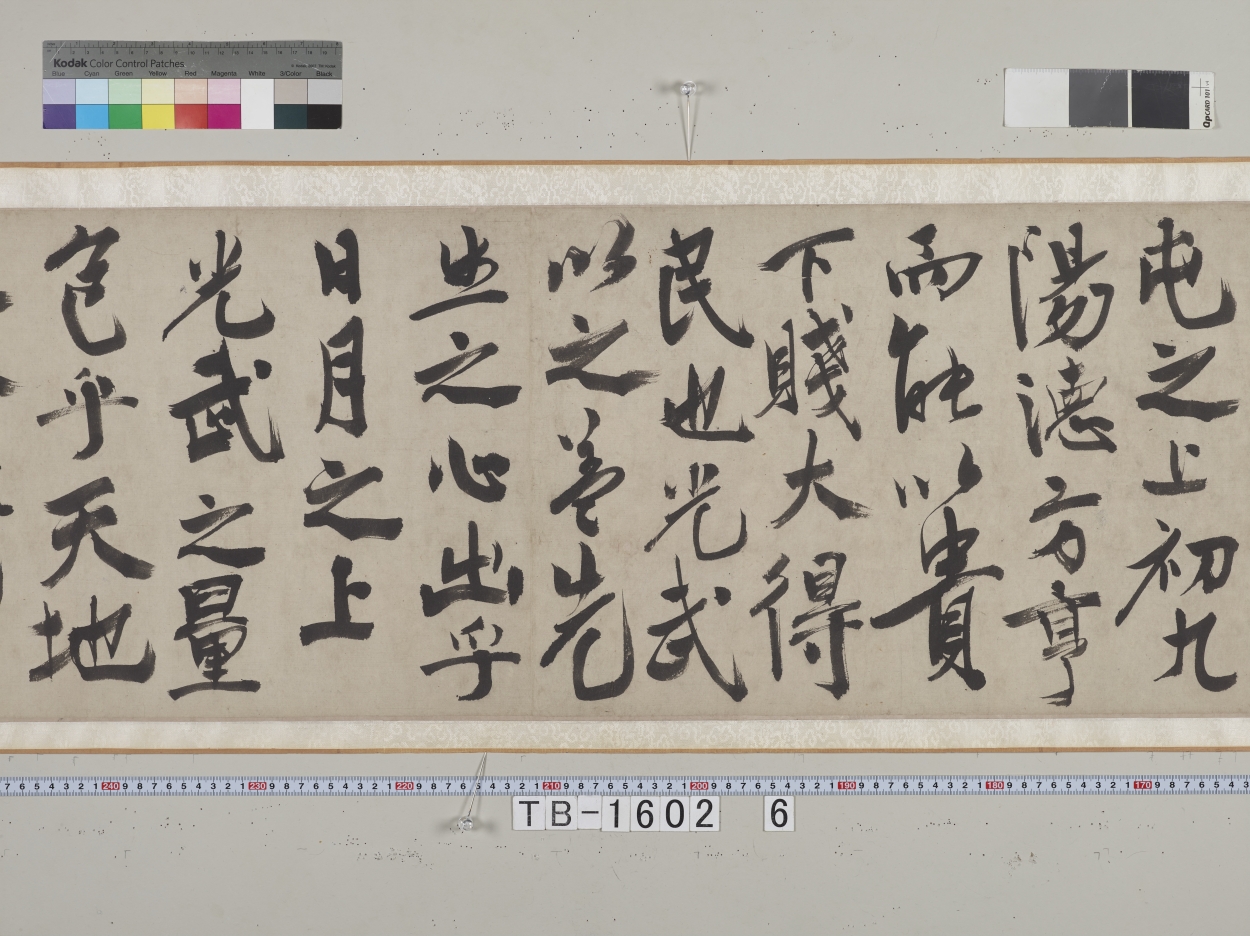 屯之上初九
陽德方亨
而能以貴
下賤大得
民也光武
以之蓋先
生之心出乎
日月之上
光武之量
包乎天地
Kodak Color Control Patches
Blue Cyan Green Yellow Red Magenta White 3/Color Black
QPCARD 101
240 230 220 210 200 190 180 170
TB-1602 6